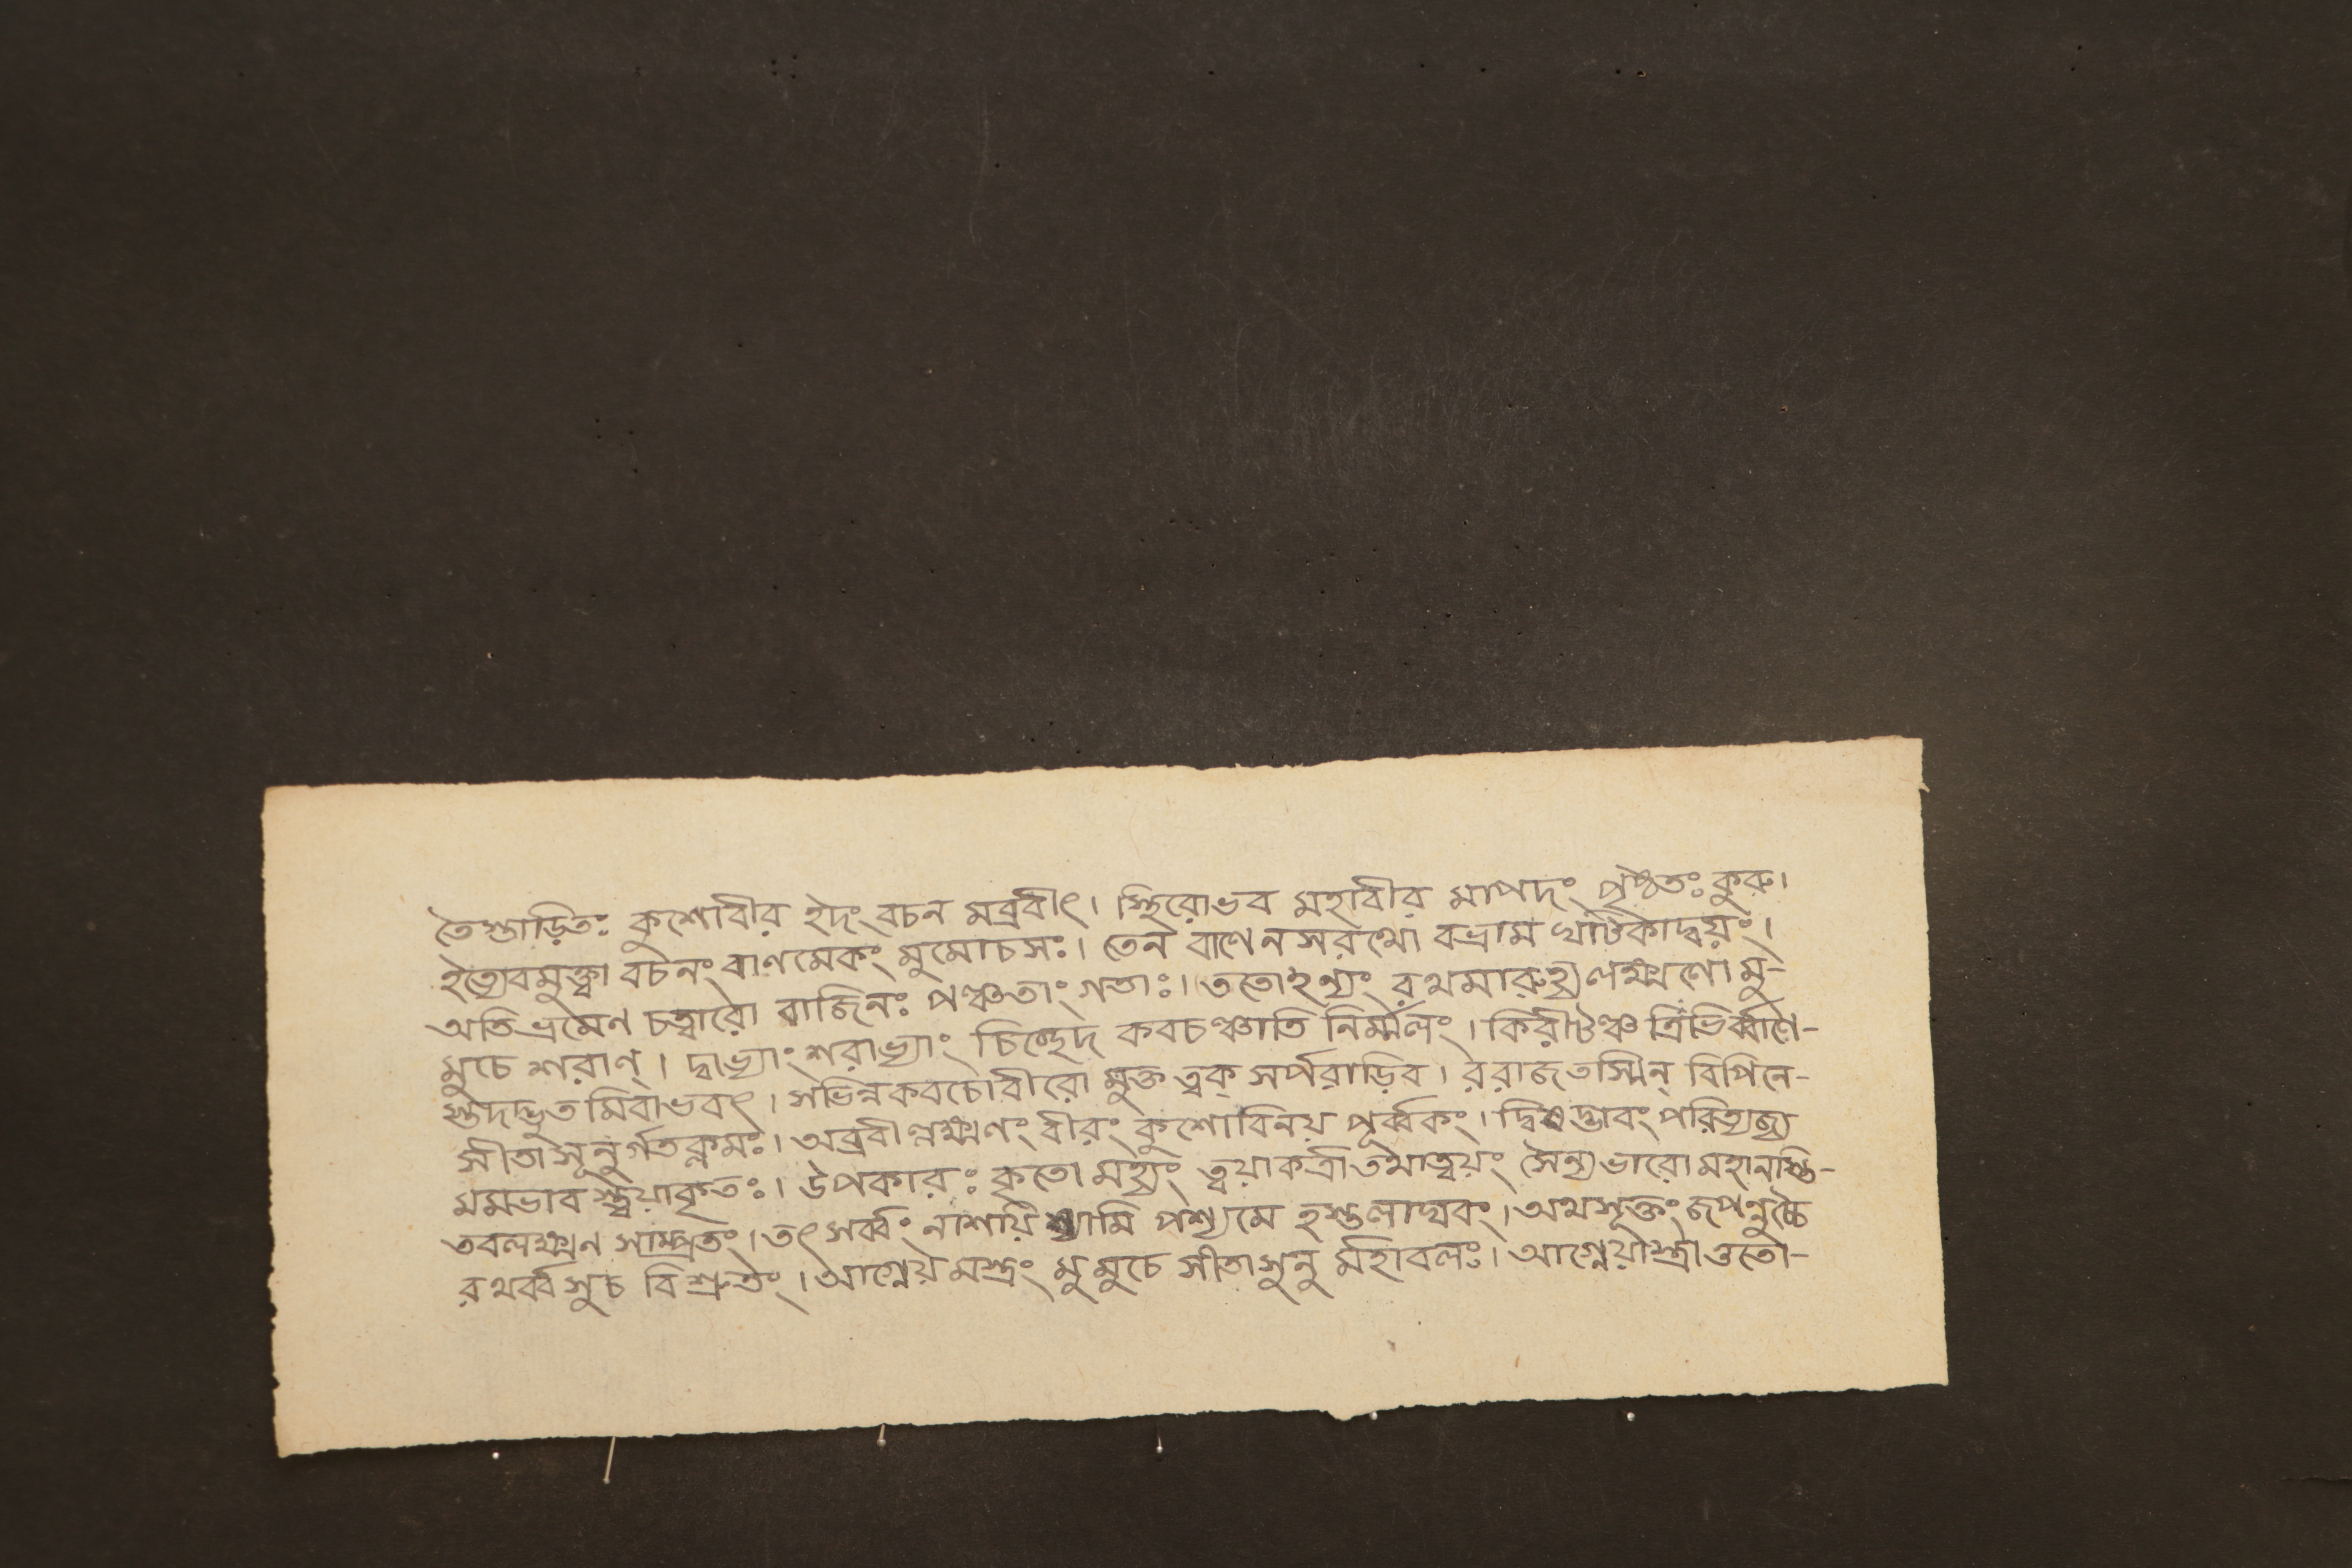 তৈস্তাড়িতঃ কুশোবীর ইদং বচন মব্রবীৎ। স্থিরোভব মহাবীর মাপদং পৃষ্ঠতঃ কুরু।
ইত্যেবমুক্ত্বা বচনং বাণমেকং মুমোচসঃ। তেন বাণেনসরথো বভ্রাম ঘটিকাদ্বয়ং।
অতিভ্রমেণ চত্বারো বাজিনঃ পঞ্চতাং গতাঃ। ততোহন্যং রথমারুহ্য লক্ষ্মণো মু-
মুচে শরাণ্। দ্বাভ্যাং শরাভ্যাং চিচ্ছেদ কবচঞ্চাতি নির্ম্মলং। কিরীটঞ্চ ত্রিভির্ব্বাণৈ-
স্তদদ্ভুত মিবাভবৎ। সভিন্নকবচোবীরো মুক্ত ত্বক্ সর্পরাড়িব। ররাজতস্মিন্ বিপিনে-
সীতাসূনুর্গতক্লমঃ। অব্রবীল্লক্ষ্মণং বীরং কুশোবিনয় পূর্ব্বকং। দ্বিষদ্ভাবং পরিত্যজ্য
মমভাব স্ত্বয়াকৃতঃ। উপকারঃ কৃতো মহ্যং ত্বয়াকর্ত্রাতথাত্বয়ং সৈন্যভারোমহানস্তি-
তবলক্ষ্মণ সাম্প্রতং। তৎ সর্ব্বং নাশয়িষ্যামি পশ্যমে হস্তলাঘবং। অথসূক্তং জপন্নুচ্চৈ
রথর্ব্বসুচ বিশ্রুতং। আগ্নেয়মস্ত্রং মুমুচে সীতাসুনু র্মহাবলঃ। আগ্নেয়াস্ত্রাত্ততো-